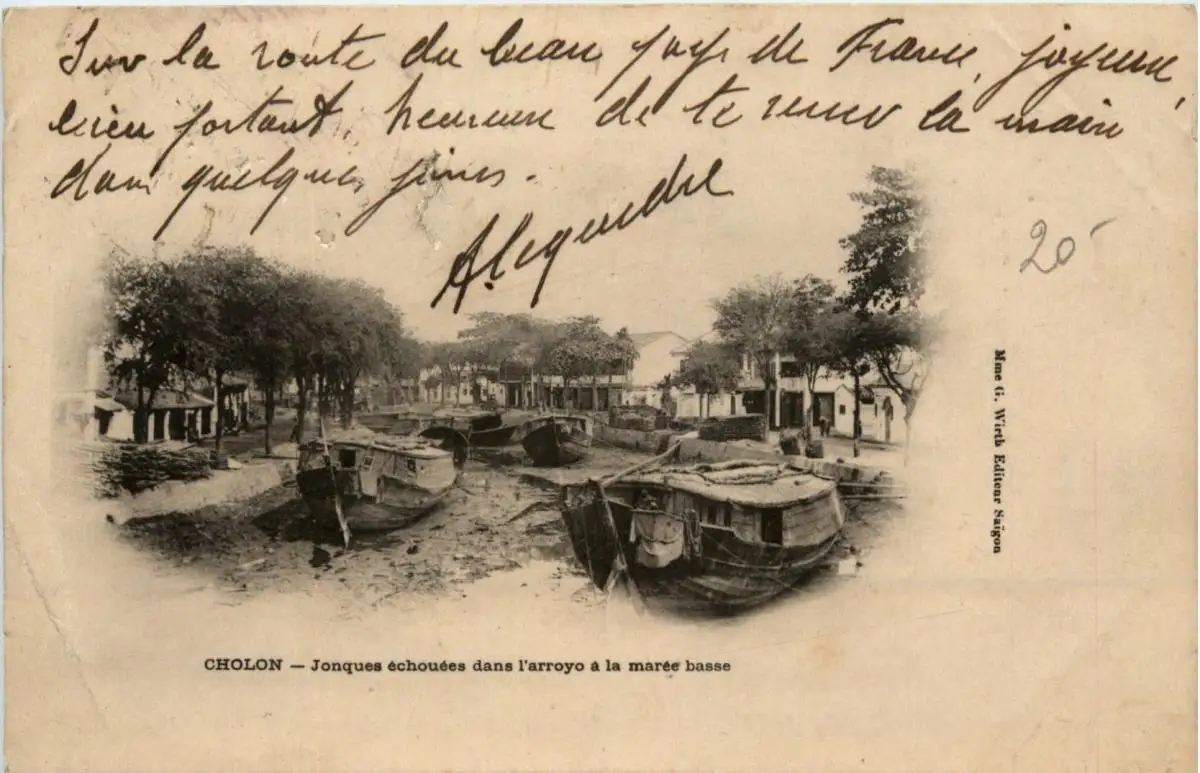 Sur la route du beau pays de France, joyeux,
bien portant, heureux de te serrer la main
dans quelques jours.
20
Mme G. Wirth Editeur Saïgon
CHOLON — Jonques échouées dans l'arroyo à la marée basse